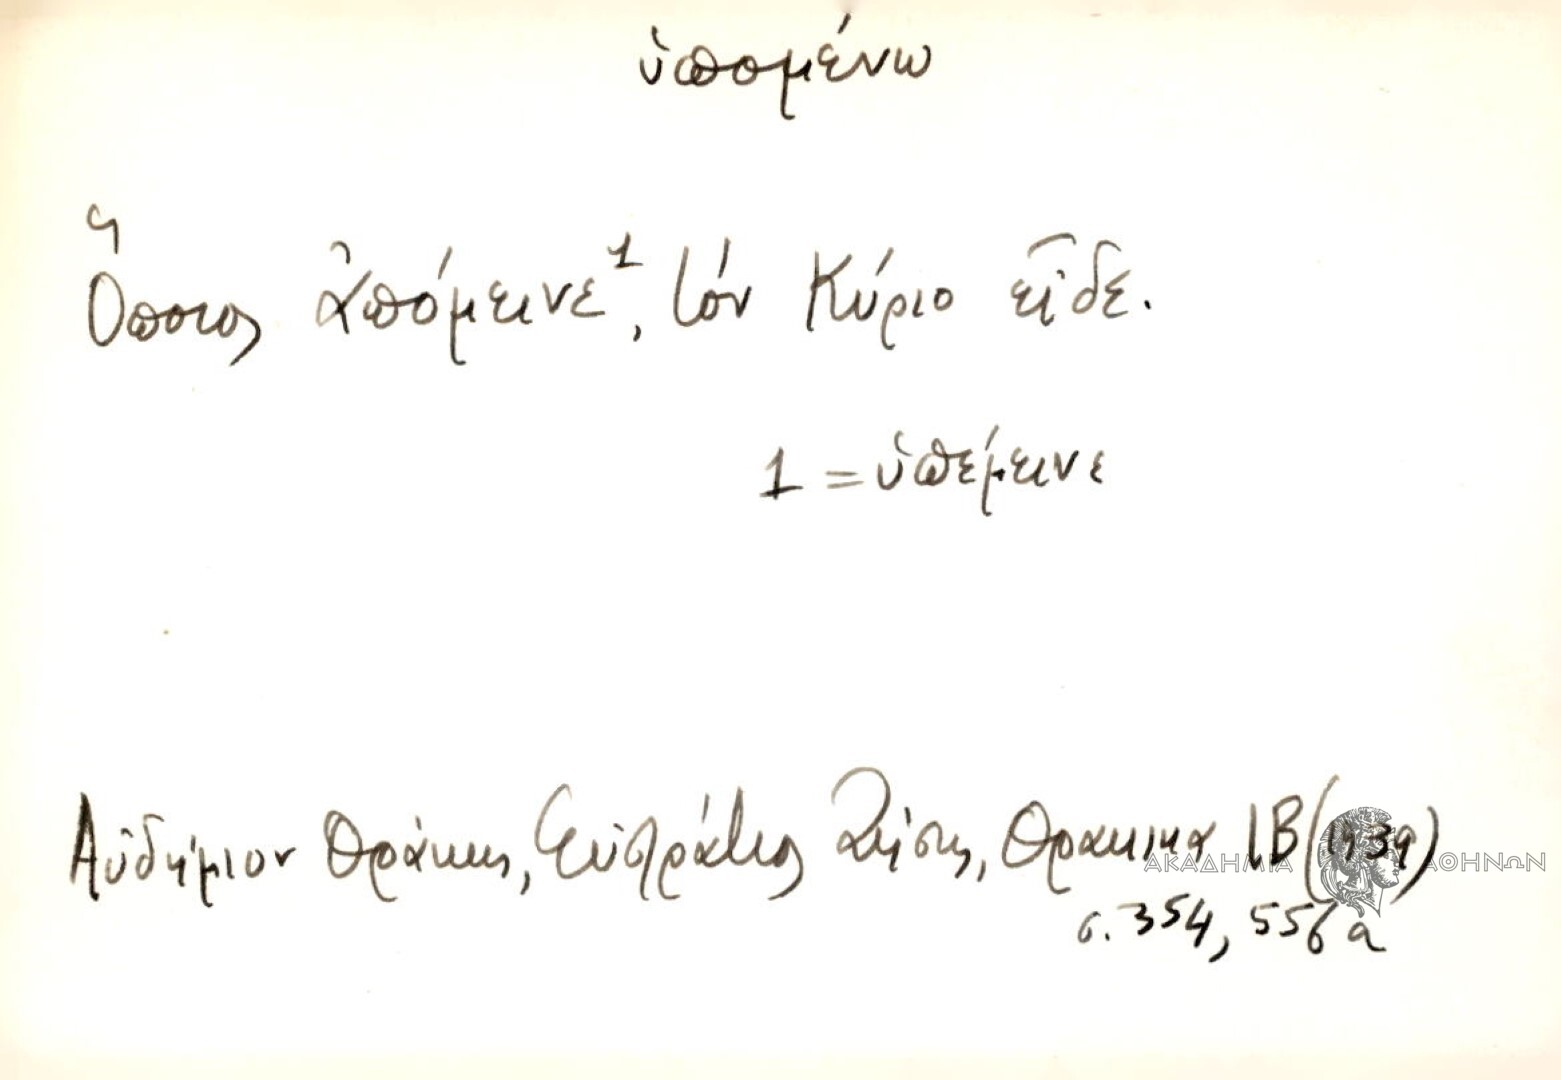 ὑπομένω
Ὅποιος ἀπόμεινε¹, τόν Κύριο εἶδε.
1 = ὑπέμεινε
Αὐδήμιον Θράκης, Εὐστράτιος Ζήσης, Θρακικά ΙΒ (1939)
σ. 354, 556 α
ΑΚΑΔΗΜΙΑ ΑΘΗΝΩΝ